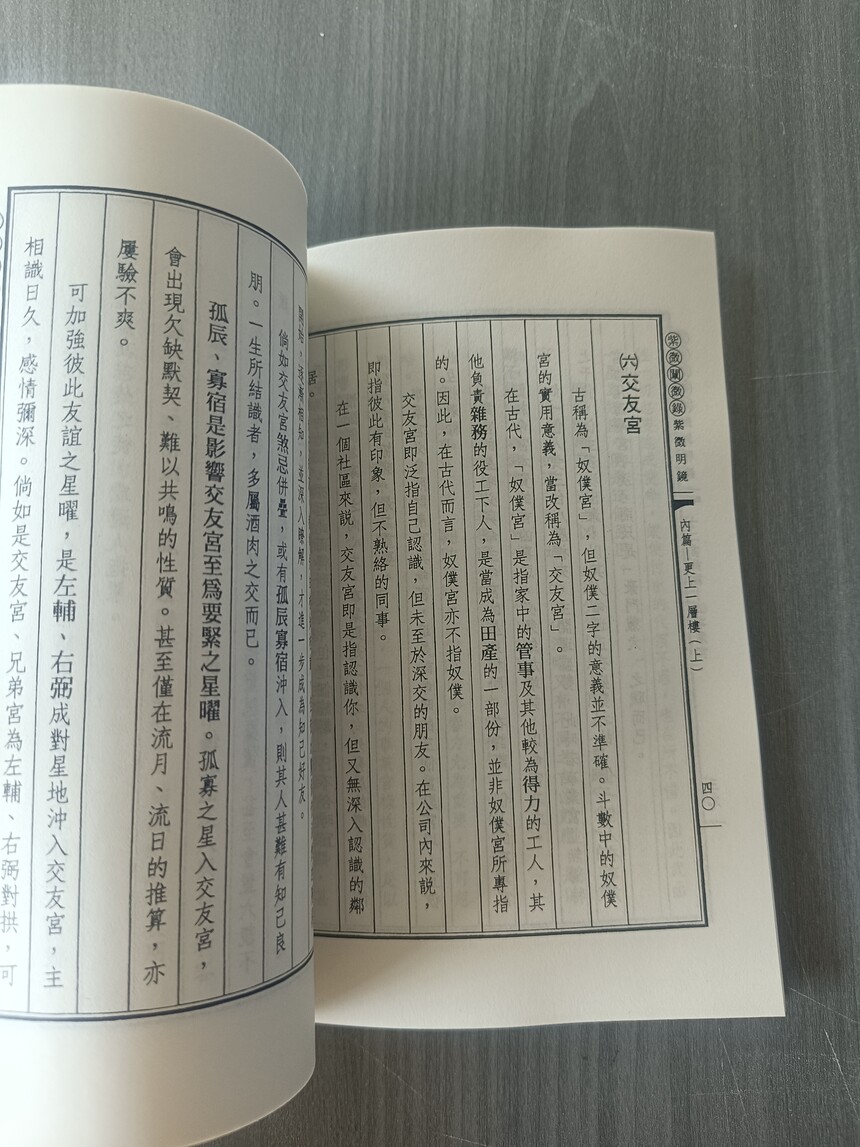 紫微闡微錄 紫微明鏡
內篇—更上一層樓(上)
四〇
㈥交友宮
古稱為「奴僕宮」,但奴僕二字的意義並不準確。斗數中的奴僕
宮的實用意義,當改稱為「交友宮」。
在古代,「奴僕宮」是指家中的管事及其他較為得力的工人,其
他負責雜務的役工下人,是當成為田產的一部份,並非奴僕宮所專指
的。因此,在古代而言,奴僕宮亦不指奴僕。
交友宮即泛指自己認識,但未至於深交的朋友。在公司內來說,
即指彼此有印象,但不熟絡的同事。
在一個社區來說,交友宮即是指認識你,但又無深入認識的鄰
居。
開始,逐漸相知,並深入瞭解,才進一步成為知己好友。
倘如交友宮煞忌併疊,或有孤辰寡宿沖入,則其人甚難有知己良
朋。一生所結識者,多屬酒肉之交而已。
孤辰、寡宿是影響交友宮至為要緊之星曜。孤寡之星入交友宮,
會出現欠缺默契、難以共鳴的性質。甚至僅在流月、流日的推算,亦
屢驗不爽。
可加強彼此友誼之星曜,是左輔、右弼成對星地沖入交友宮,主
相識日久,感情彌深。倘如是交友宮、兄弟宮為左輔、右弼對拱,可